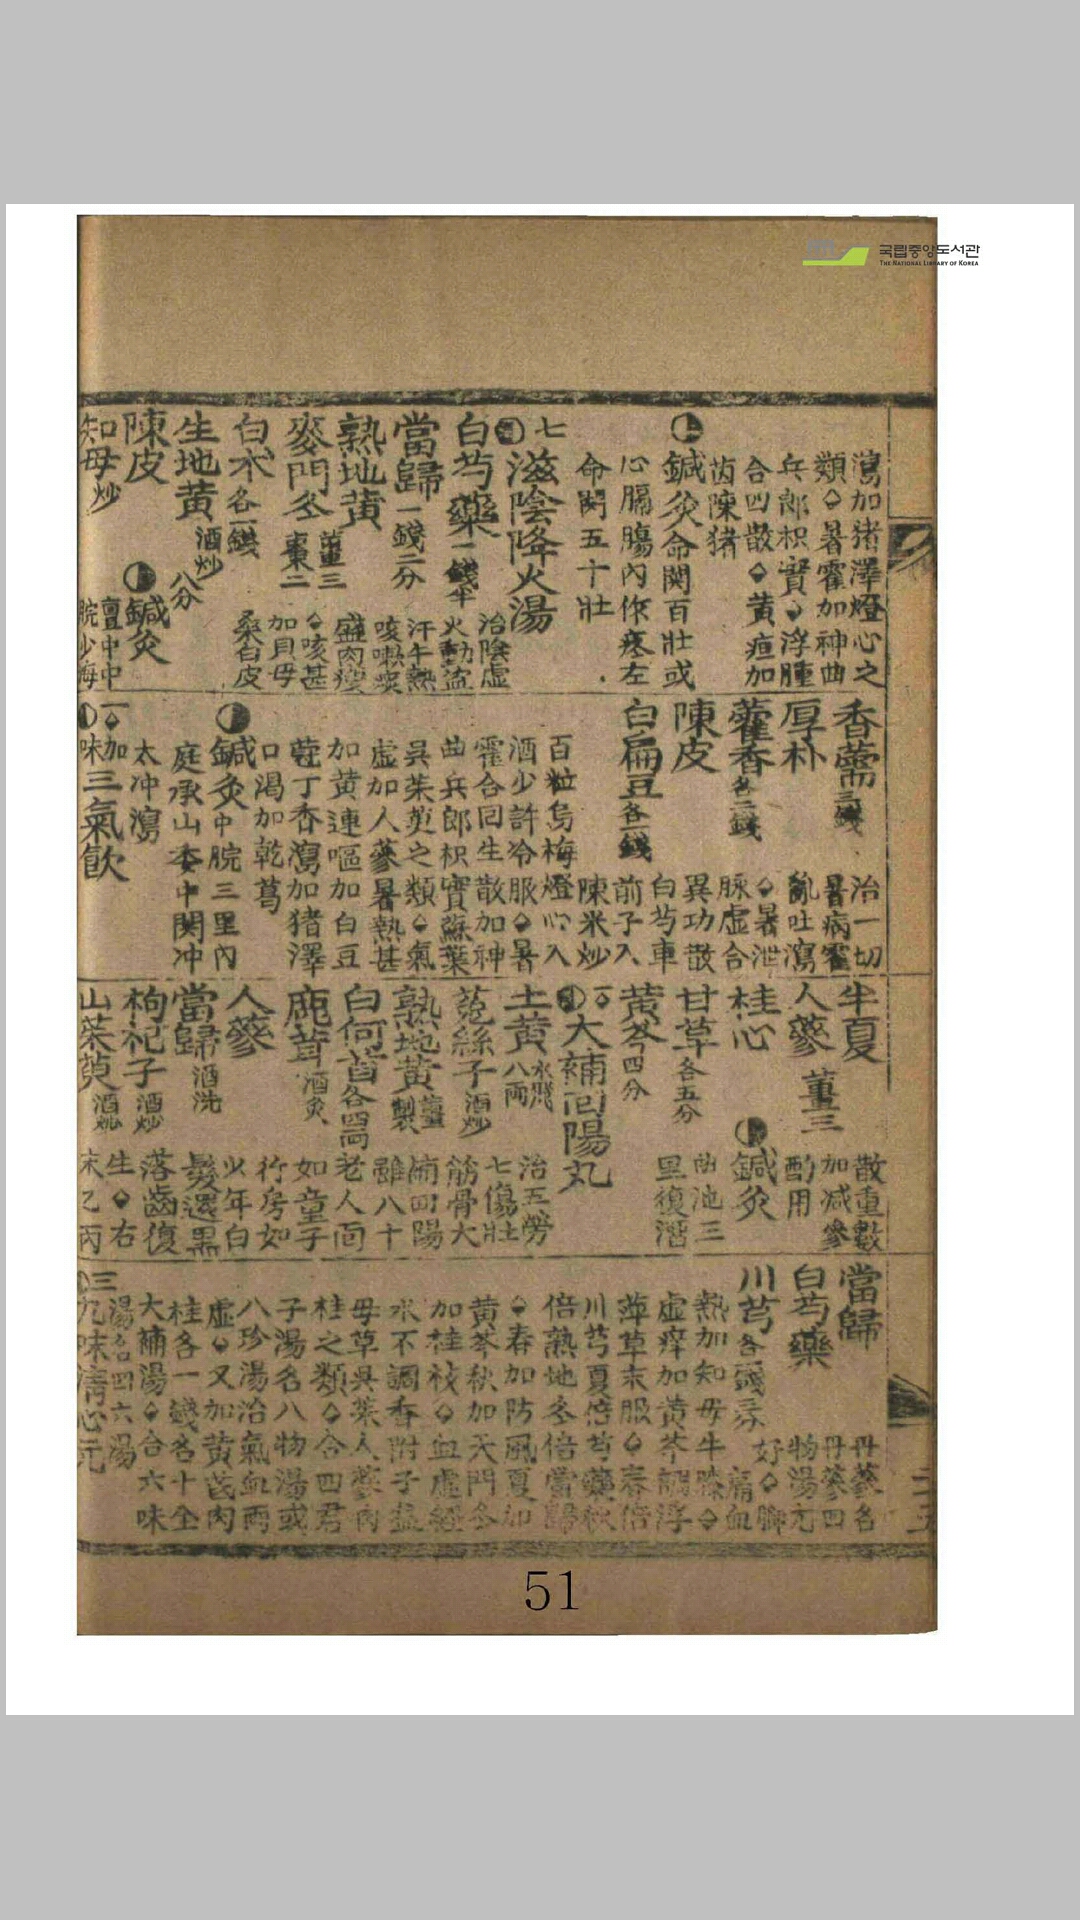 국립중앙도서관
THE NATIONAL LIBRARY OF KOREA
瀉加猪澤燈心之
類◇暑霍加神曲
兵郞枳實◇浮腫
合四散◇黃疸加
茵陳猪
鍼灸命関百壯或
心膈膓內作疼左
命関五十壯
七
滋陰降火湯
治陰虛
火動盜
汗午熱
咳嗽痰
盛肉瘦
◇咳甚
加貝母
桑白皮
白芍藥一錢半
當歸一錢二分
熟地黃
麥門冬
薑三
棗二
白朮各一錢
生地黃酒炒
八分
陳皮
鍼灸
膻中中
知母炒
香薷三錢
厚朴
藿香各二錢
陳皮
白扁豆各一錢
治一切
暑病霍
亂吐瀉
◇暑泄
脉虛合
異功散
白芍車
前子入
陳米炒
百粒烏梅燈心入
酒少許冷服◇暑
霍合回生散加神
曲兵郞枳實蘇葉
吳茱萸之類◇氣
虛加人蔘暑熱甚
加黃連嘔加白豆
蔲丁香瀉加猪澤
口渴加乾葛
鍼灸中脘三里內
庭承山委中関冲
太冲瀉
一加
味三氣飮
當歸酒洗
枸杞子酒炒
山茱萸酒炒
半夏
人蔘
薑三
桂心
甘草各五分
黃芩四分
散重數
加减參
酌用
鍼灸
曲池三
里復溜
大補回陽丸
土黃水飛
八兩
菟絲子酒炒
熟地黃薑製
白何首各四兩
鹿茸酒灸
人蔘
治五勞
七傷壯
筋骨大
補回陽
雖八十
老人面
如童子
行房如
少年白
髮還黑
落齒復
生◇右
末乙丙
當歸
白芍藥
川芎各一錢二分
丹蔘名
丹蔘四
物湯尤
好◇脚
痛血
熱加知母牛膝◇
虛痒加黃芩調浮
萍草末服◇春倍
川芎夏倍芍藥秋
倍熟地冬倍當歸
◇春加防風夏加
黃芩秋加天門冬
加桂枝◇血虛經
水不調香附子益
母草吳茱人蔘肉
桂之類◇合四君
子湯名八物湯或
八珍湯治氣血兩
虛◇又加黃芪肉
桂各一錢名十全
大補湯◇合六味
湯名四六湯
三
九味淸心元
51